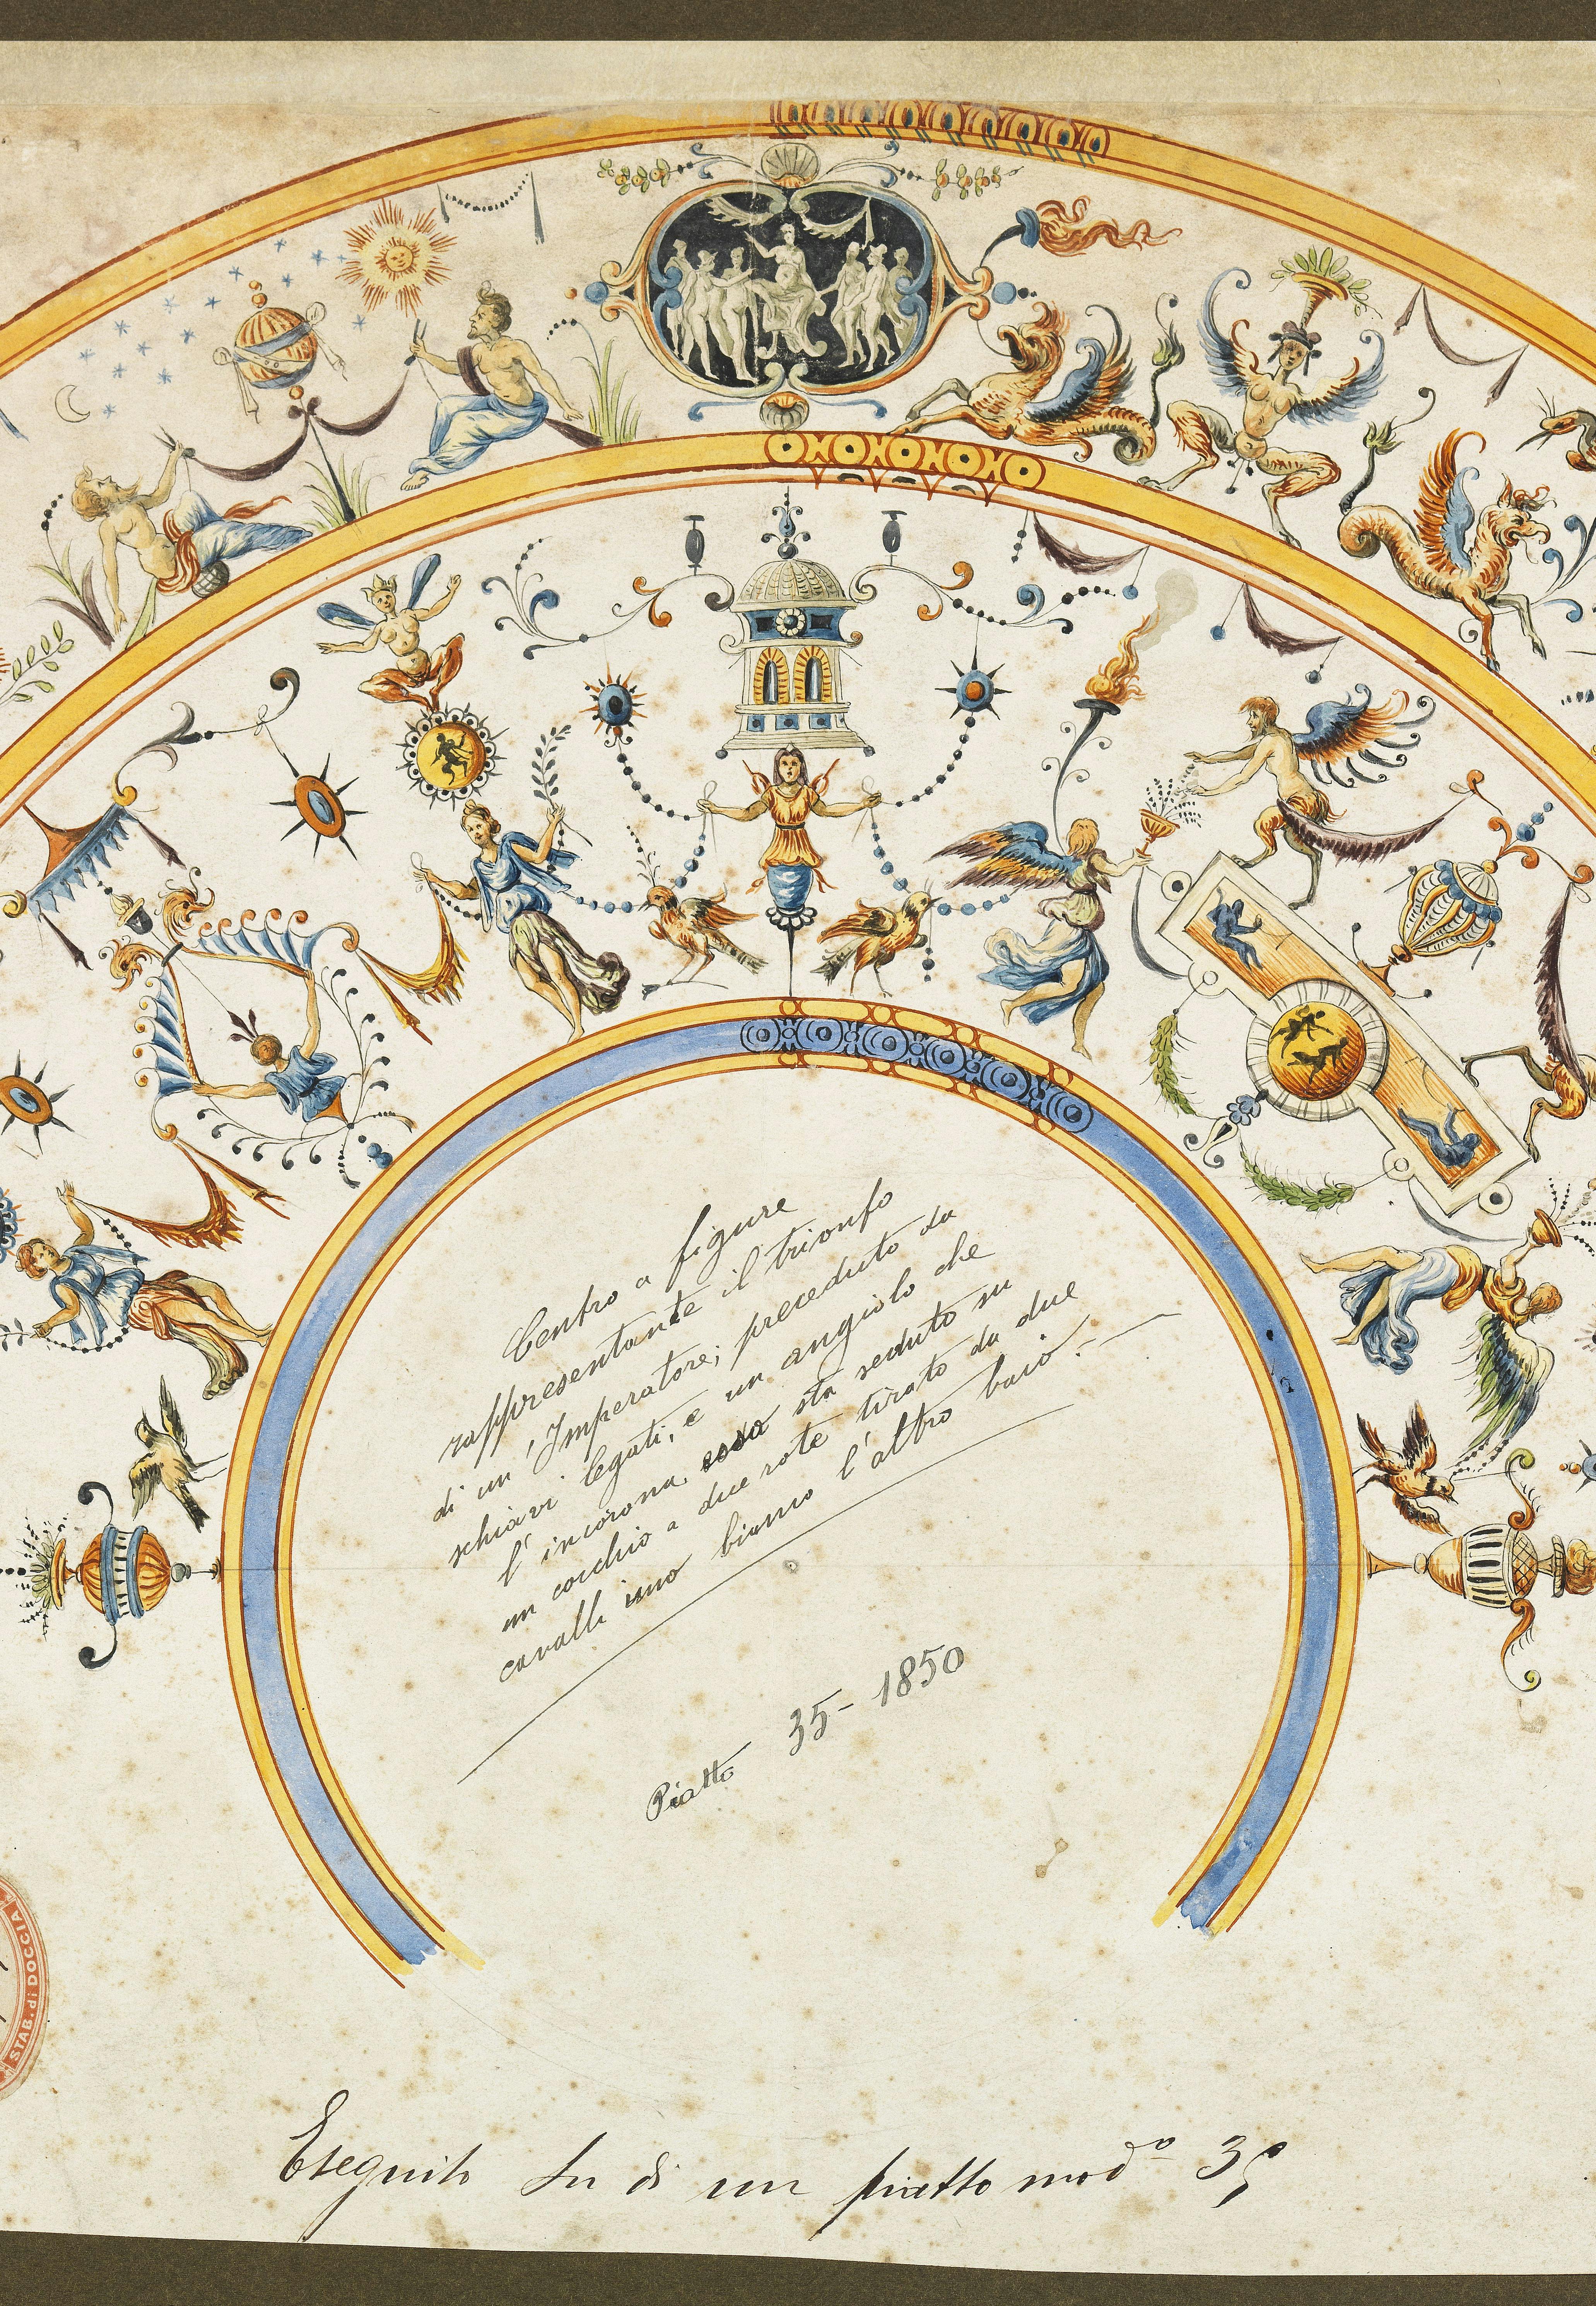 Centro a figure
rappresentante il trionfo
di un' Imperatore; preceduto da
schiavi legati, e un angiolo che
l' incorona, esso sta seduto su
un cocchio a due rote tirato da due
cavalli uno bianco l'altro baio.
Piatto 35 - 1850
Eseguito su di un piatto mod.º 35
STAB. di DOCCIA